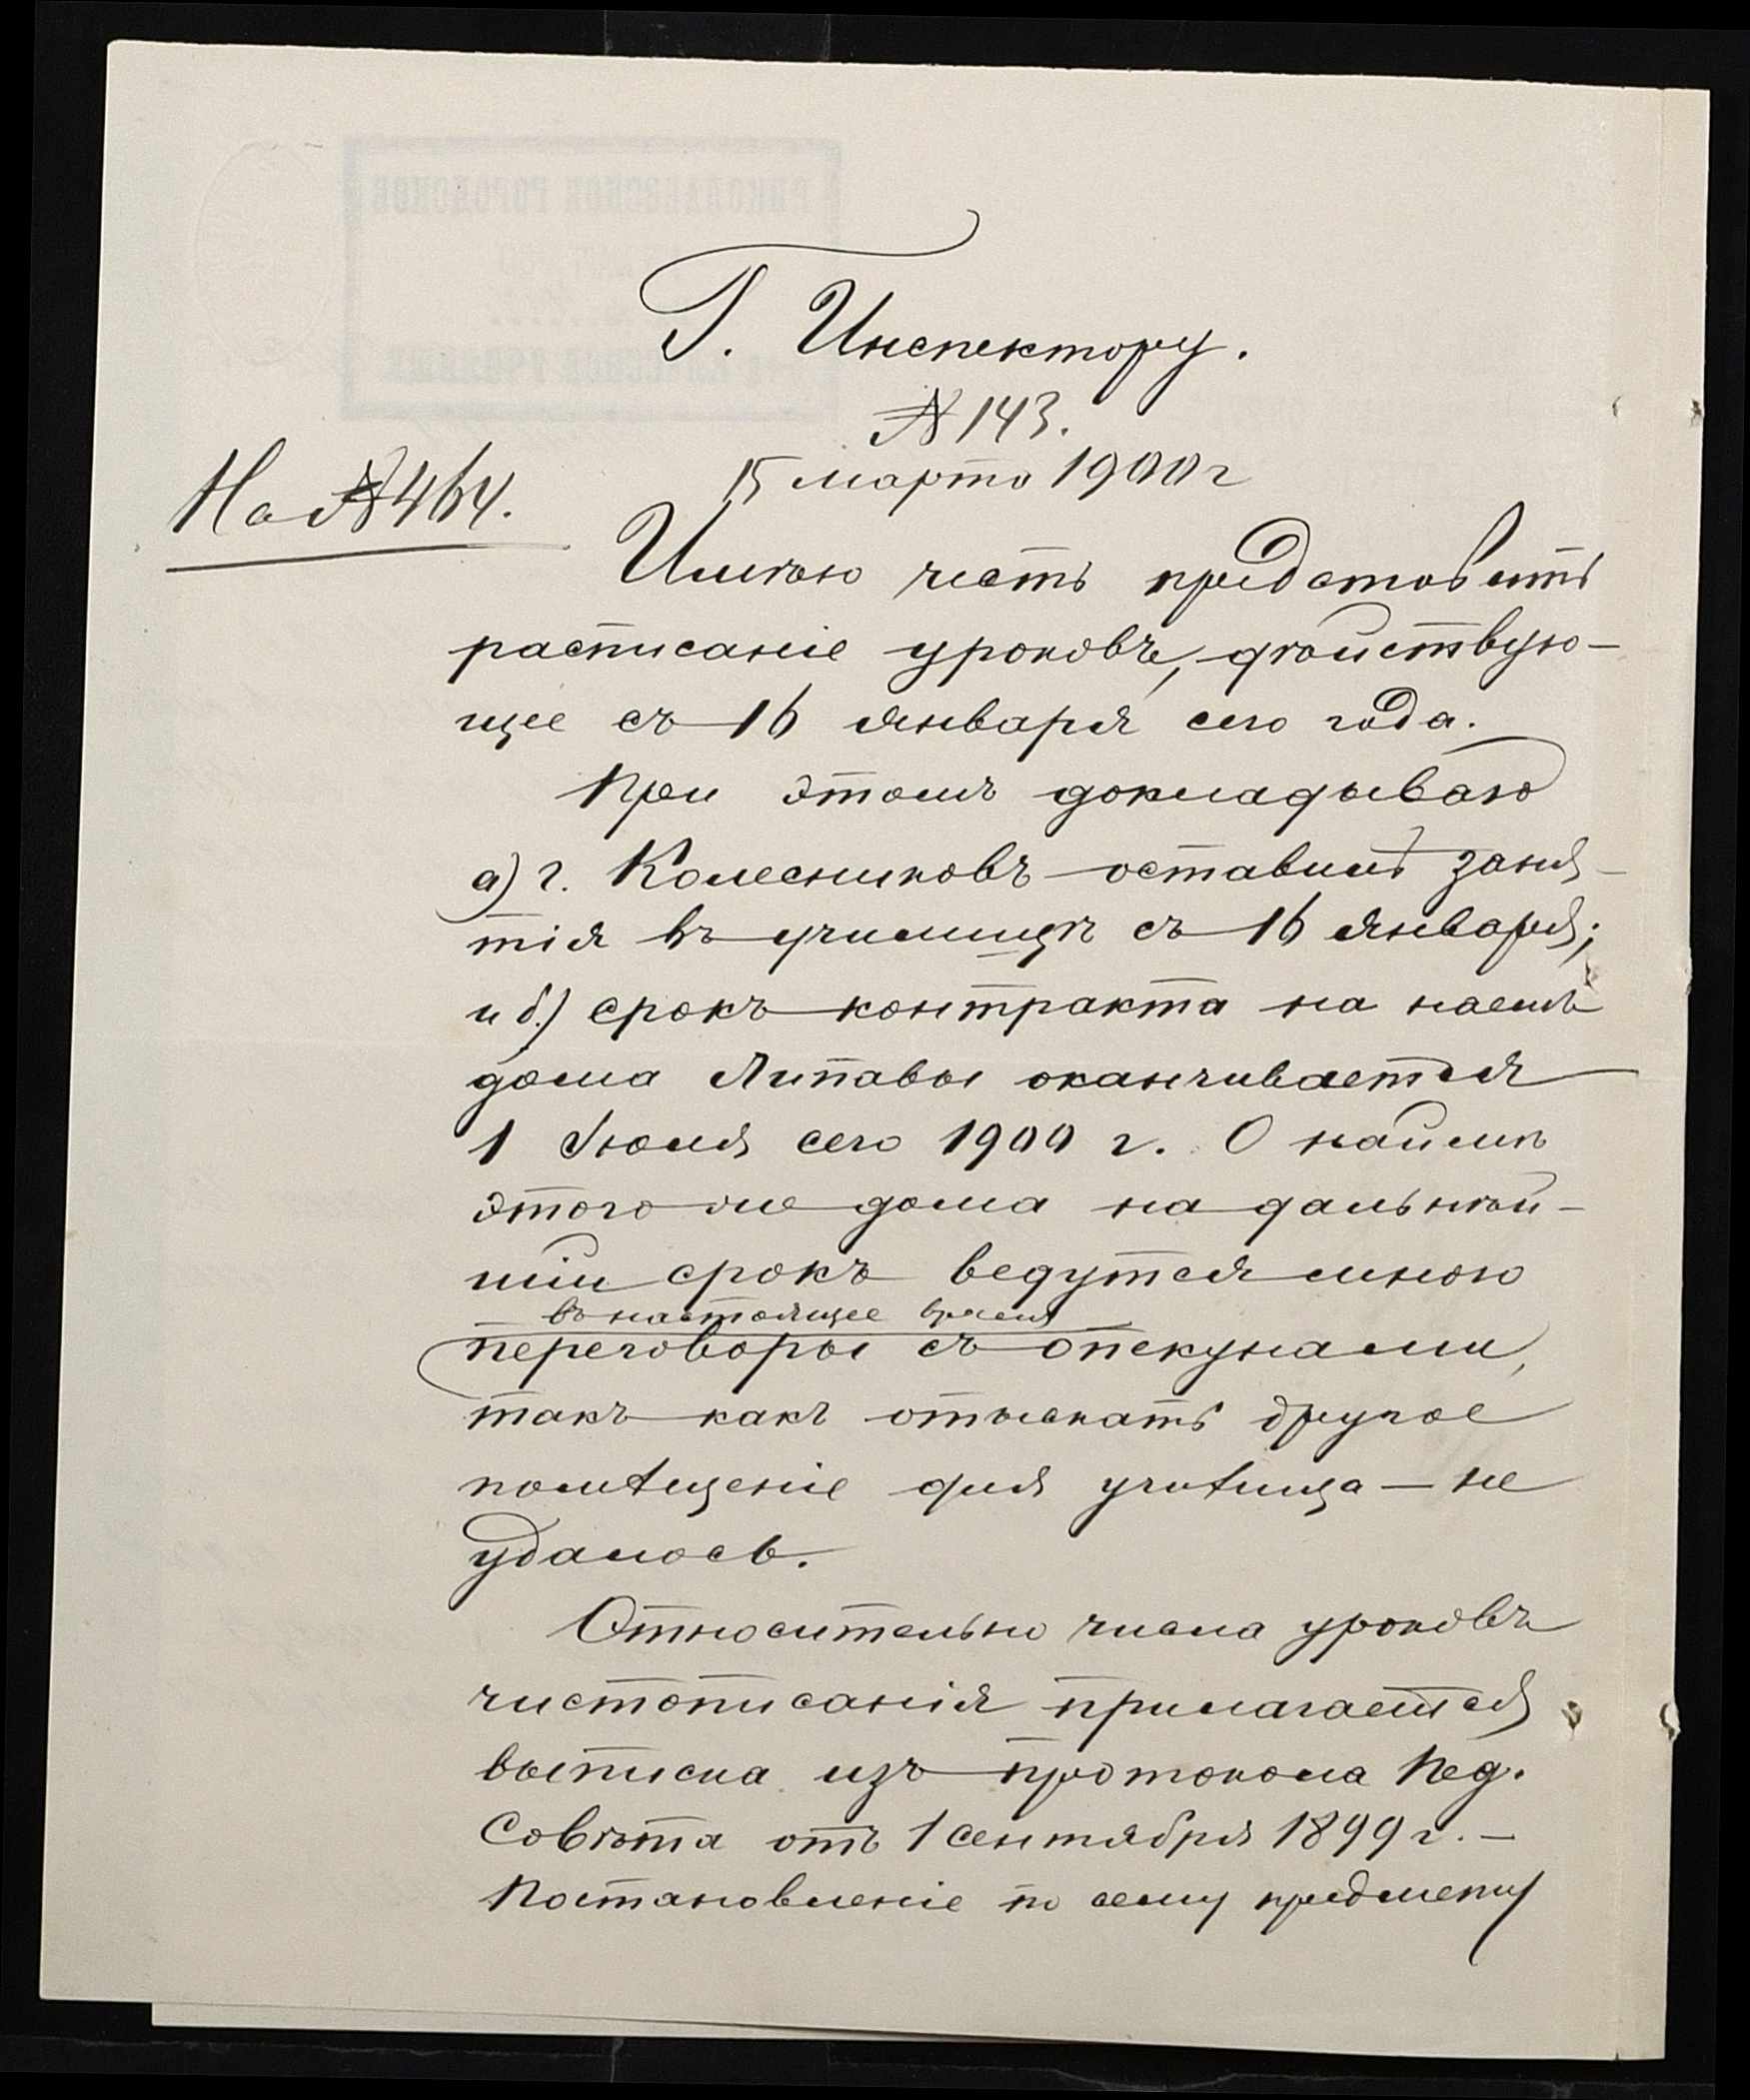 Г. Инспектору.
№ 143.
15 марта 1900 г
На № 464.
Имѣю честь представить
расписаніе уроковъ, дѣйствую-
щее съ 16 января сего года.
При этомъ докладываю
а) г. Колесниковъ оставилъ заня-
тія въ училищѣ съ 16 января;
и б) срокъ контракта на наемъ
дома Липавы оканчивается
1 Іюля сего 1900 г. О наймѣ
этого же дома на дальнѣй-
шій срокъ ведутся мною
въ настоящее время
переговоры съ опекунами,
такъ какъ отыскать другое
помѣщеніе для училища — не
удалось.
Относительно числа уроковъ
чистописанія прилагается
выписка изъ протокола Пед.
Совѣта отъ 1 сентября 1899 г. —
Постановленіе по сему предмету